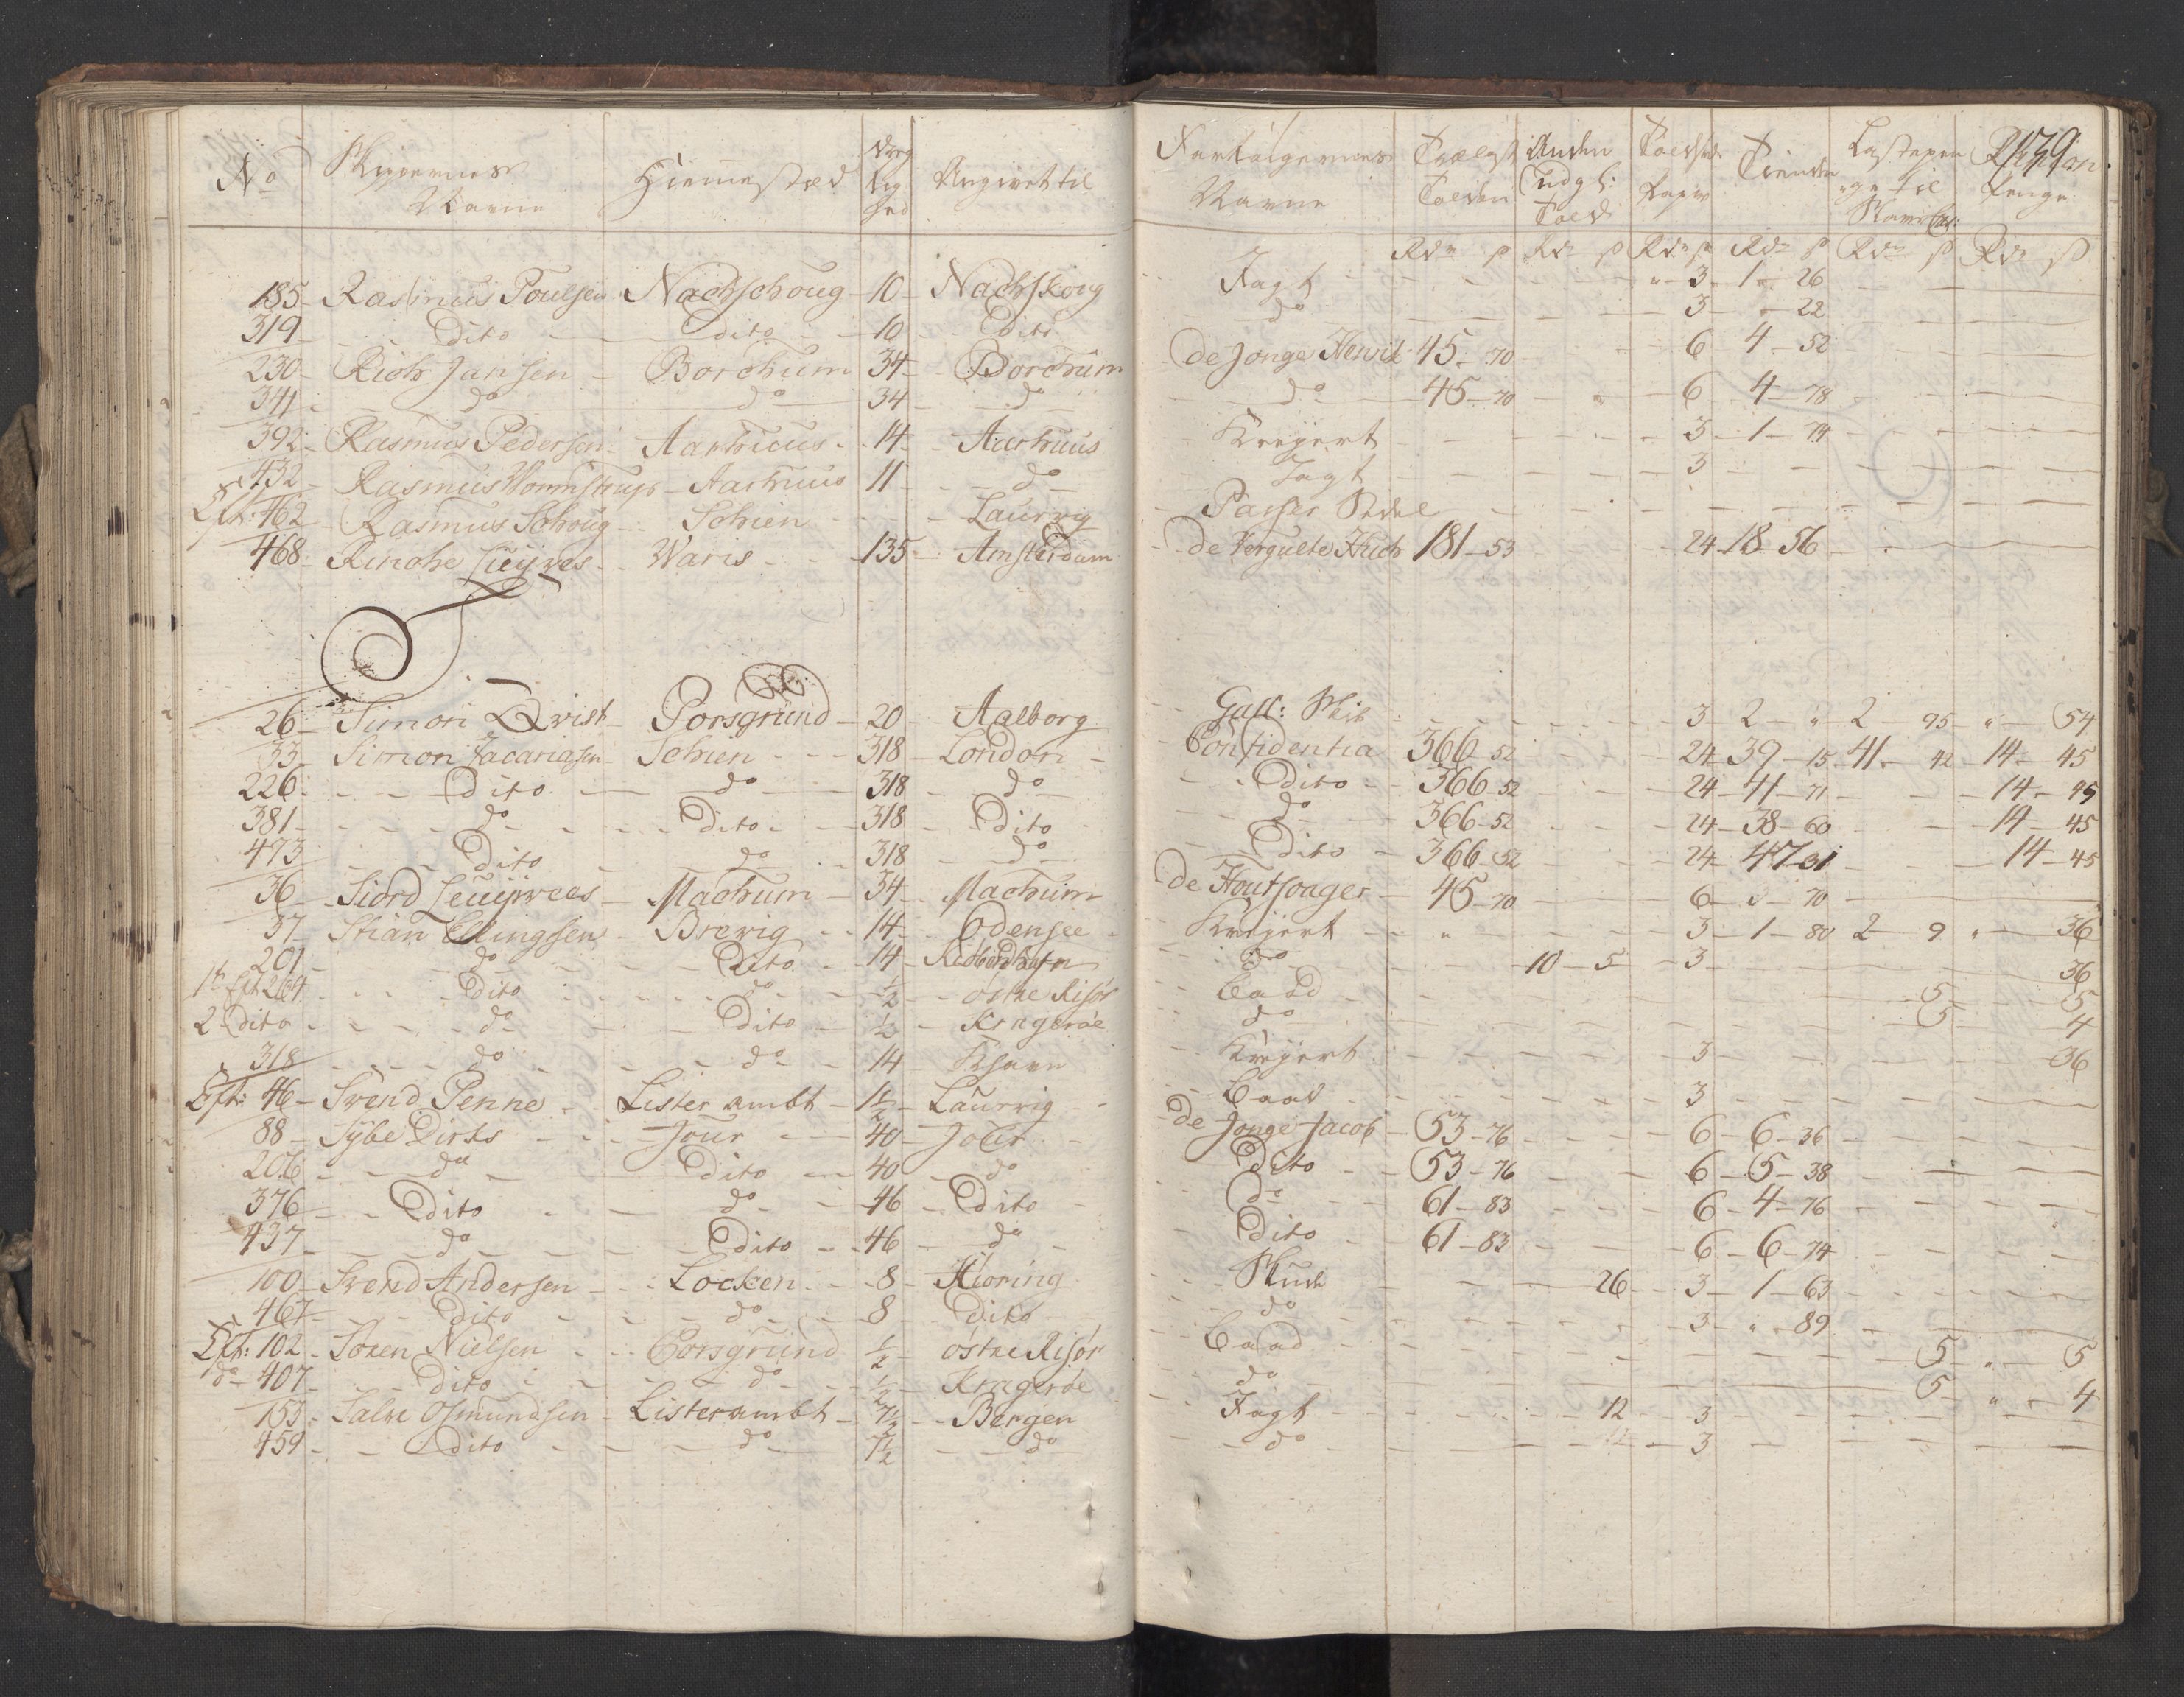 No | Skipernes Navne | Hiemmestæd | Dræg tig hed | Angivet til | Fartøigernes Navne | Trælast Tolden | Anden Udg: Told | Told | Tiende | Lastepen
Rdr ß | Rdr ß | Rdr ß | Rdr ß | Rdr ß | Rdr ß
185 - Rasmus Poulsen - Nachschoug - 10 - Nachskoug - Jagt - 3 - 1 - 26
319 - Dito - dito - 10 - Dito - do - 3 - 22
230 - Rich Jansen - Borchum - 34 - Borchum - de Jonge Henrik - 45 - 70 - 6 - 4 - 52
341 - do - do - 34 - do - do - 45 - 70 - 6 - 4 - 78
392 - Rasmus Pedersen - Aarhuus - 14 - Aarhuus - Kreijert - 3 - 1 - 74
432 - Rasmus - Aarhuus - 11 - do - Jagt - 3
Eft: 462 - Rasmus Schoug - Schien - Laurvig - Passer Sedel
468 - Rinche - Waris - 135 - Amsterdam - de Vergulte - 181 - 53 - 24 - 18 - 56
S
26 - Simon Qvist - Porsgrund - 20 - Aalborg - Gall: Skib - 3 - 2 - " - 2 - 95 - " - 54
33 - Simon Zacariasen - Schien - 318 - London - Confidentia - 366 - 52 - 24 - 39 - 15 - 41 - 42 - 14 - 45
226 - Dito - do - 318 - do - Dito - 366 - 52 - 24 - 41 - 71 - 14 - 45
381 - do - Dito - 318 - Dito - do - 366 - 52 - 24 - 38 - 60 - 14 - 45
473 - Dito - do - 318 - do - Dito - 366 - 52 - 24 - 47 - 31 - 14 - 45
36 - Siord - Machum - 34 - Machum - de Houtsaager - 45 - 70 - 6 - 3 - 70
37 - Stian Ellingsen - Brevig - 14 - Odensee - Kreijert - 3 - 1 - 80 - 2 - 9 - " - 36
201 - do - Dito - 14 - Kiøbenhafn - do - 10 - 5 - 3 - 36
1te Eft 264 - Dito - do - 1/2 - østre Risør - Baad - 5 - 5
2 Dito - do - Dito - 1/2 - Kragerøe - do - 5 - 4
318 - do - do - 14 - Khavn - Kreijert - 3 - 36
Eft: 46 - Svend Penne - Lister ambt - 1 1/2 - Laurvig - Baad - 3
88 - Sybe Dirks - Jour - 40 - Jour - de Jonge Jacob - 53 - 76 - 6 - 6 - 36
206 - do - Dito - 40 - do - Dito - 53 - 76 - 6 - 5 - 38
376 - Dito - do - 46 - Dito - do - 61 - 83 - 6 - 4 - 76
437 - do - Dito - 46 - do - Dito - 61 - 83 - 6 - 6 - 74
100 - Svend Andersen - Locken - 8 - Hiøring - Skude - 26 - 3 - 1 - 63
467 - Dito - do - 8 - Dito - do - 3 - " - 89
Eft: 102 - Søren Nielsen - Porsgrund - 1/2 - østre Risør - Baad - 5 - " - 5
do 407 - Dito - do - 1/2 - Kragerøe - do - 5 - " - 4
153 - Salve Osmundsen - Lister ambt - 7 1/2 - Bergen - Jagt - 12 - 3
459 - Dito - do - 7 1/2 - do - do - 12 - 3